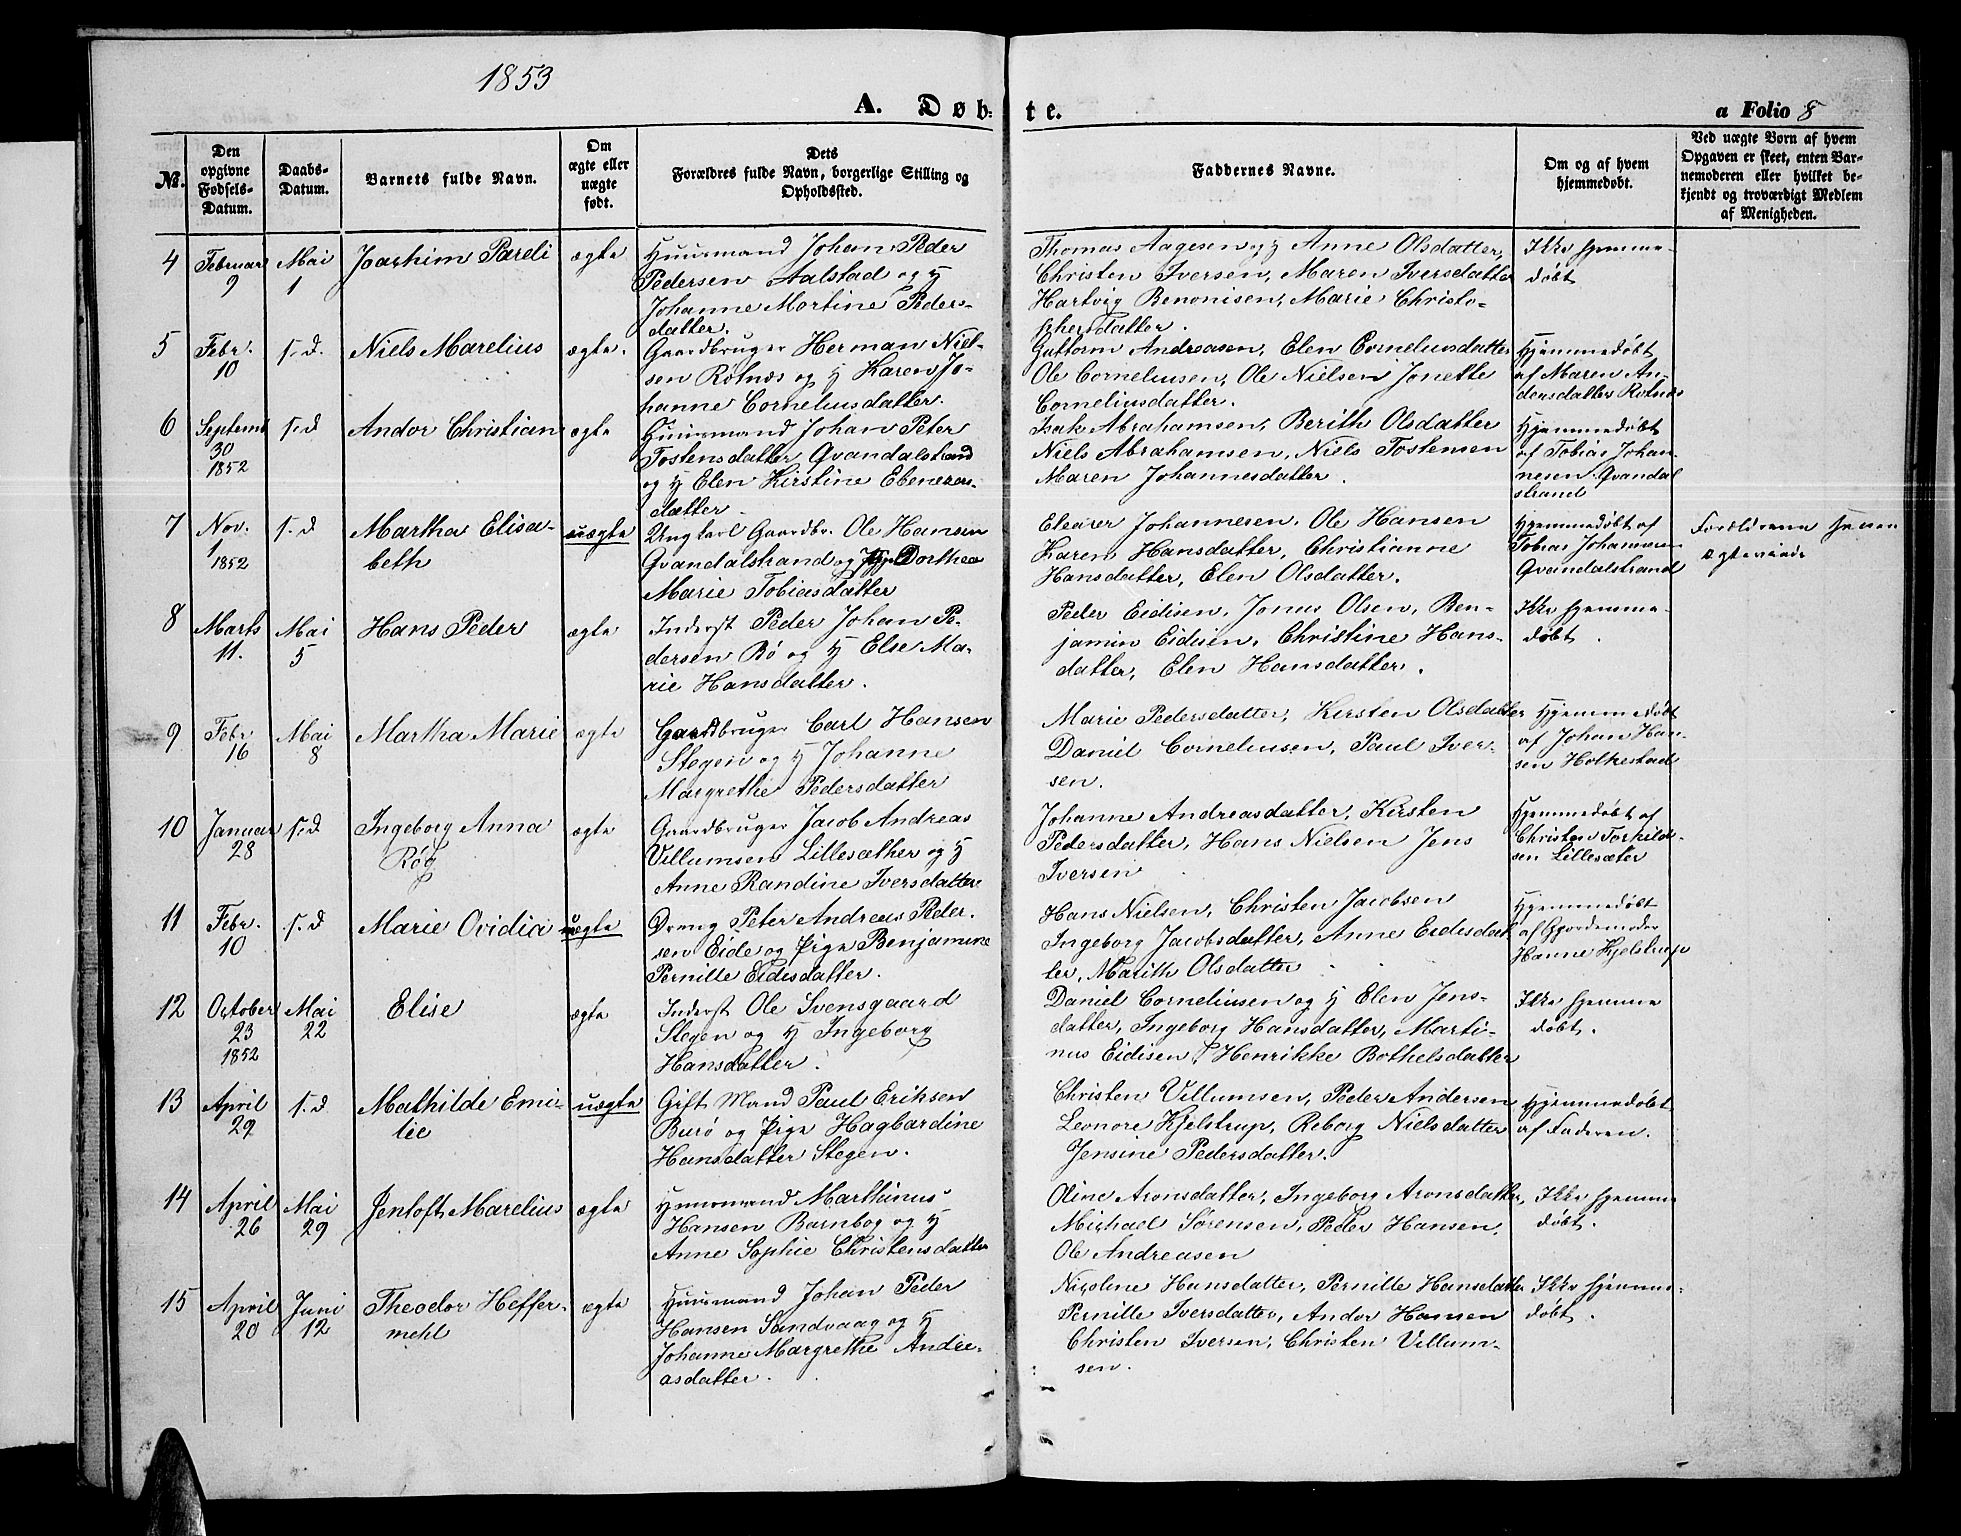 1853
A. Døbte.
a Folio 8
№.
Den
opgivne
Fødsels-
Datum.
Daabs-
Datum.
Barnets fulde Navn.
Om
ægte eller
uægte
født.
Dets
Forældres fulde Navn, borgerlige Stilling og
Opholdssted.
Faddernes Navne.
Om og af hvem
hjemmedøbt.
Ved uægte Børn af hvem
Opgaven er skeet, enten Bar-
nemoderen eller hvilket be-
kjendt og troværdigt Medlem
af Menigheden.
4
Februar
9
Mai
1
Joachim Pareli
ægte
Huusmand Johan Peder
Pedersen Aalstad og H
Johanne Martine Peders-
datter.
Thomas Aagesen og H Anne Olsdatter,
Christen Iversen, Maren Iversdatter
Hartvig Benonisen, Marie Christo-
phersdatter.
Ikke hjemme-
døbt
5
Febr.
10
s. d.
Niels Marelius
ægte.
Gaardbruger Herman Niel-
sen Rotnæs og H Karen Jo-
hanne Corneliusdatter.
Guttorm Andreasen, Elen Corneliusdatter
Ole Corneliusen, Ole Nielsen Jonette
Corneliusdatter.
Hjemmedøbt
af Maren An-
dersdatter Rotnæs
6
Septemb
30
1852
s. d
Andor Christian
ægte
Huusmand Johan Peter
Tostensdatter Qvandalstrand
og H Elen Kirstine Ebenezers-
datter.
Isak Abrahamsen, Berith Olsdatter
Niels Abrahamsen, Niels Tostensen
Maren Johannesdatter.
Hjemmedøbt
af Tobias Johan-
nesen Qvandal
strand
7
Nov.
1
1852
s. d
Martha Elisa-
beth
uægte
Ungkarl Gaardbr. Ole Hansen
Qvandalstrand og Pige Dorthea
Marie Tobiasdatter
Eleazer Johannesen, Ole Hansen
Karen Hansdatter, Christianne
Hansdatter, Elen Olsdatter.
Hjemmedøbt af
Tobias Johannesen
Qvandalstrand
Forældrene
8
Marts
11.
Mai
5
Hans Peder
ægte
Inderst Peder Johan Pe-
dersen Bö og H Else Ma-
rie Hansdatter.
Peder Eidisen, Jonas Olsen, Ben-
jamin Eidisen, Christine Hans-
datter, Elen Hansdatter.
Ikke hjemme-
døbt.
9
Febr
16
Mai
8
Martha Marie
ægte
Gaardbruger Carl Hansen
Stegen og H Johanne
Margrethe Pedersdatter
Marie Pedersdatter, Kirsten Olsdatter
Daniel Corneliusen, Paul Iver-
sen.
Hjemmedøbt
af Johan Han-
sen Holkestad
10
Januar
28
s. d
Ingeborg Anna
Røg
ægte
Gaardbruger Jacob Andreas
Villumsen Lillesæther og H
Anne Randine Iversdatter
Johanne Andreasdatter, Kirsten
Pedersdatter, Hans Nielsen Jens
Iversen
Hjemmedøbt af
Christen Torkild-
sen Lillesæter
11
Febr.
10
s. d
Marie Ovidia
uægte
Dreng Peter Andreas Peder-
sen Eide og Pige Benjamine
Pernille Eidisdatter.
Hans Nielsen, Christen Jacobsen
Ingeborg Jacobsdatter, Anne Eidisdat
ter, Marith Olsdatter
Hjemmedøbt
af Gjordemoder
Hanne Kjelstrup
12
October
23
1852
Mai
22
Elise
ægte
Inderst Ole Svensgaard
Stegen og H Ingeborg
Hansdatter.
Daniel Corneliusen og H Elen Jens-
datter, Ingeborg Hansdatter, Marti-
nus Eidisen, Henrikke Bothelsdatter
Ikke hjemme
døbt.
13
April
29
s. d
Mathilde Emi-
lie
uægte
Gift Mand Paul Eriksen
Burö og Pige Hagbardine
Hansdatter Stegen.
Christen Villumsen, Peder Andersen
Leonore Kjelstrup, Reborg Nielsdatter
Jensine Pedersdatter.
Hjemmedøbt
af Faderen.
14
April
26
Mai
29
Jentoft Marelius
ægte
Huusmand Marthinus
Hansen Barnbog og H
Anne Sophie Christensdatter
Oline Aronsdatter, Ingeborg Aronsdatter,
Michael Sørensen, Peder Hansen,
Ole Andreasen
Ikke hjemme
døbt.
15
April
20
Juni
12
Theodor Heffer-
mehl
ægte
Huusmand Johan Peder
Hansen Sandvaag og H
Johanne Margrethe Andre-
asdatter.
Nicoline Hansdatter, Pernille Hansdatter
Pernille Iversdatter, Andor Hansen
Christen Iversen, Christen Villum-
sen.
Ikke hjemme-
døbt.